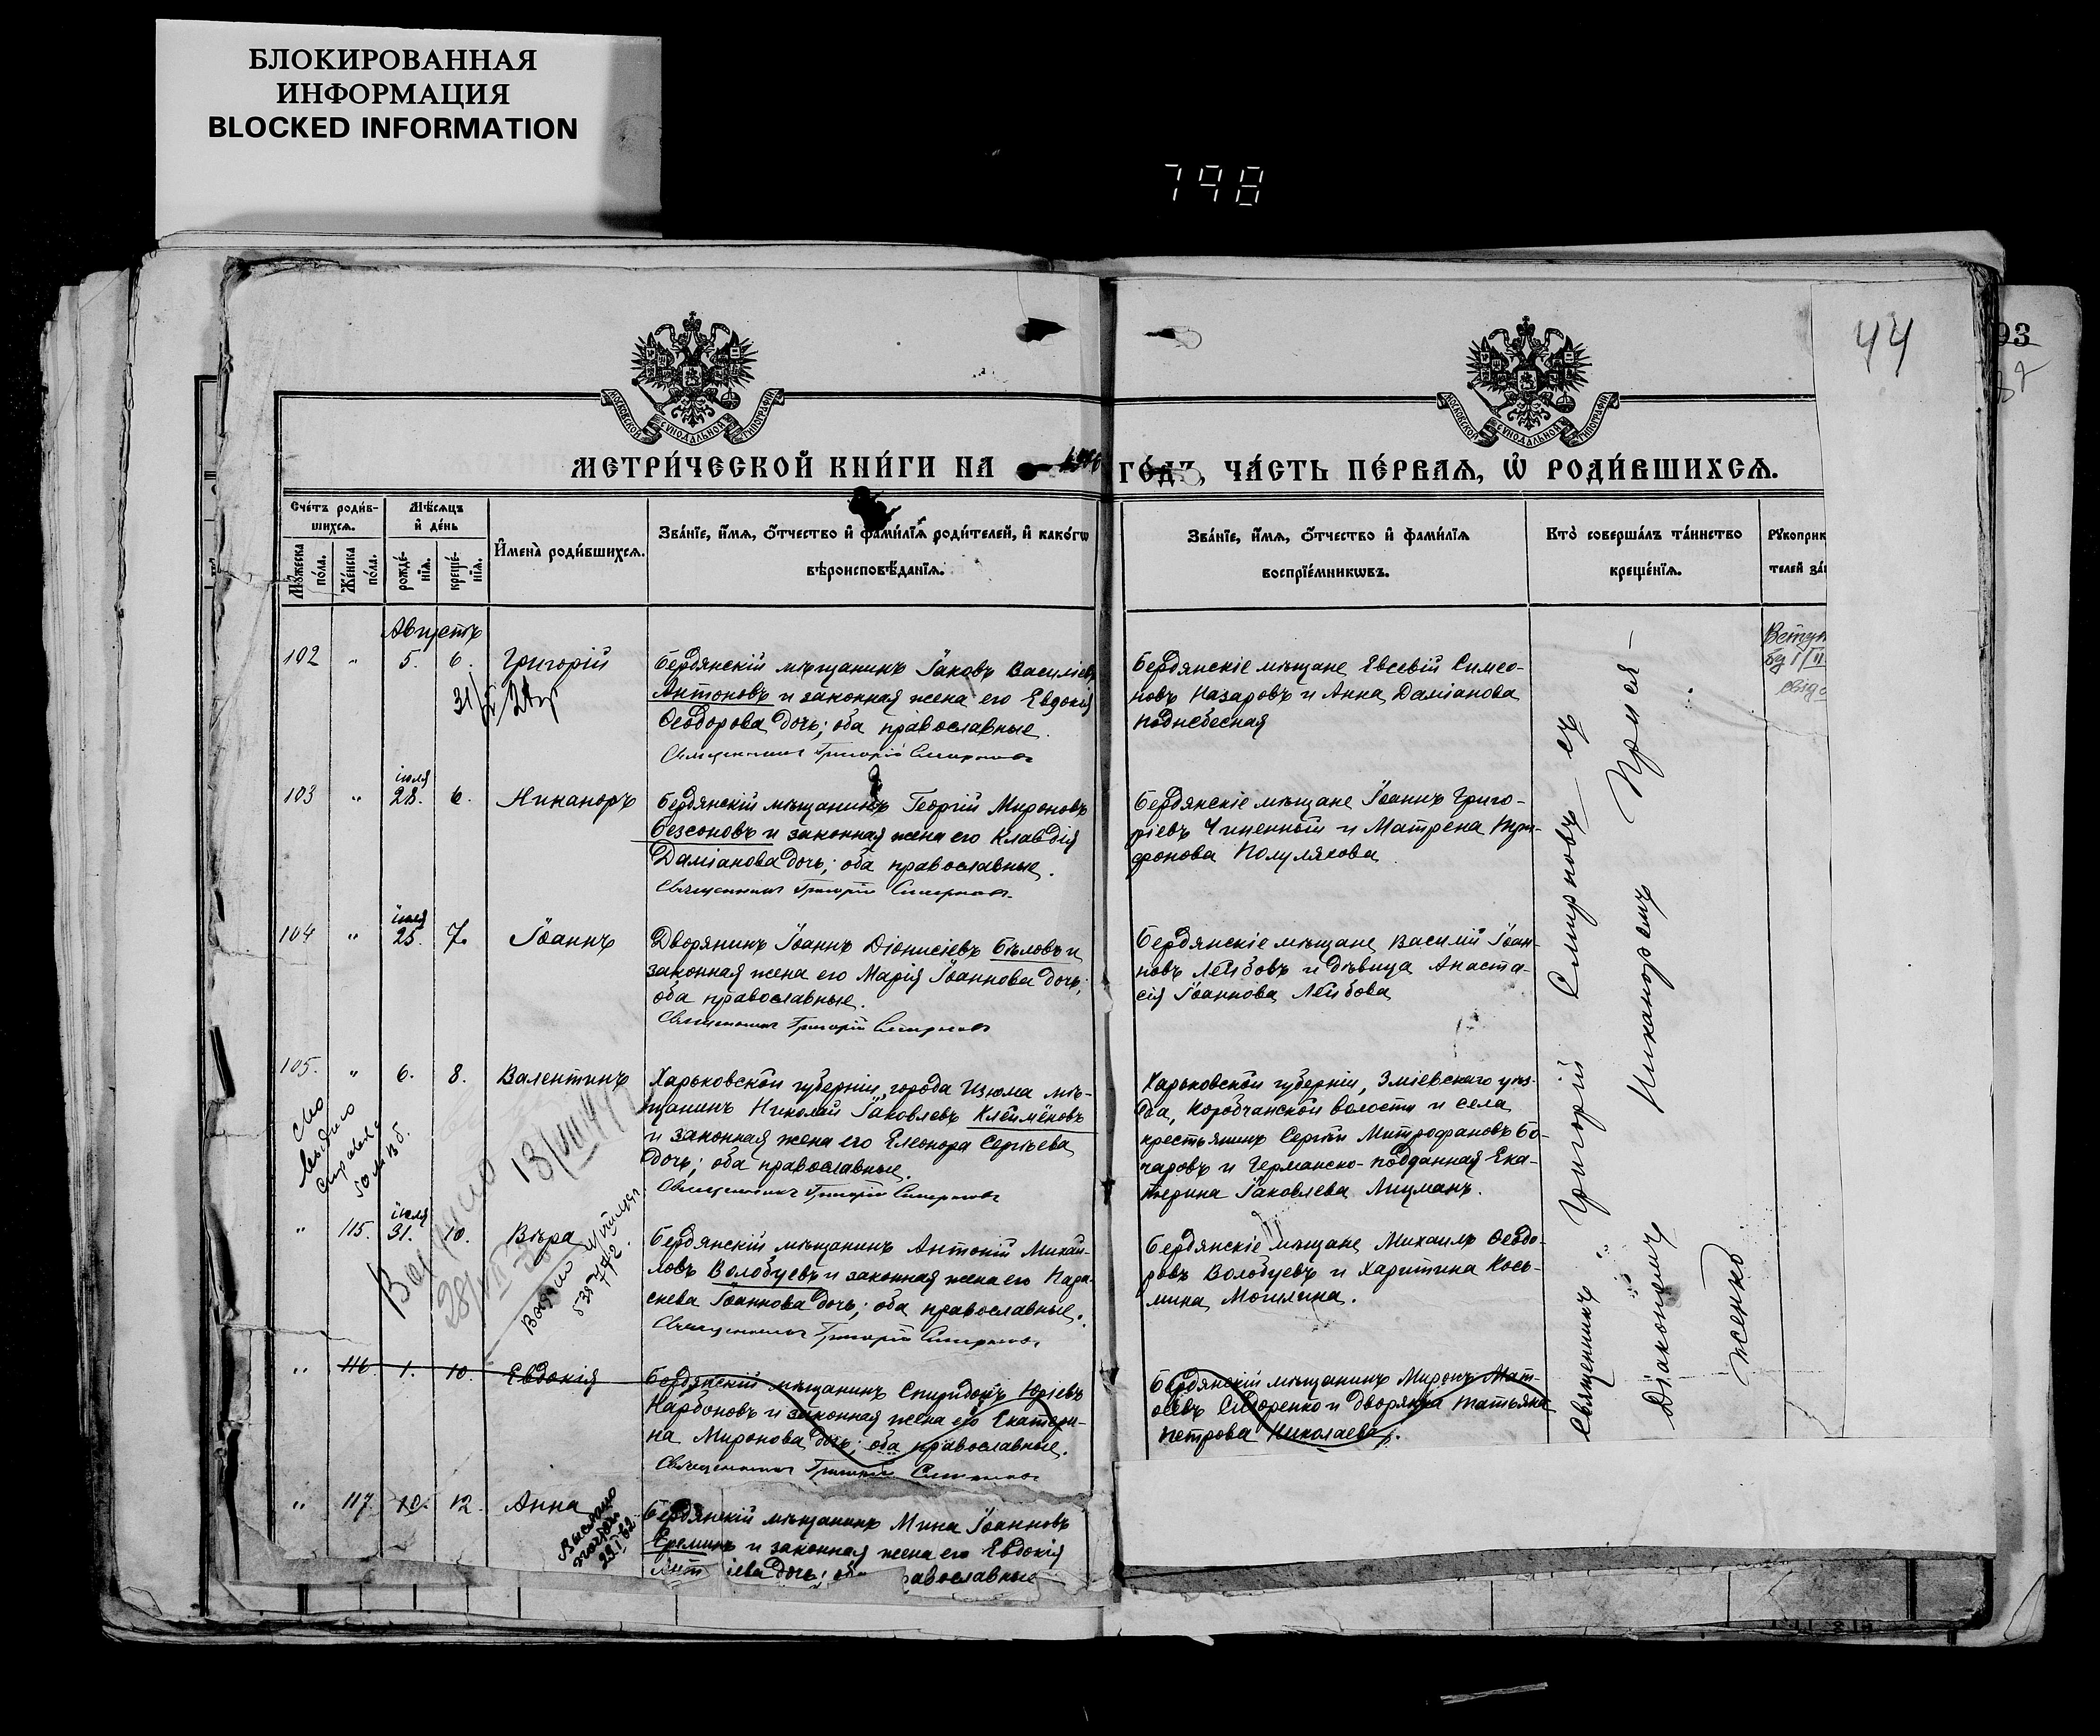 БЛОКИРОВАННАЯ
ИНФОРМАЦИЯ
BLOCKED INFORMATION
798
44
93
МОСКОВСКОЙ СѴНОДАЛЬНОЙ ТИПОГРАФІИ
МОСКОВСКОЙ СѴНОДАЛЬНОЙ ТИПОГРАФІИ
МЕТРИ́ЧЕСКОЙ КНИ́ГИ НА
ГО́ДЪ, ЧА́СТЬ ПЕ́РВАѦ, Ѡ҆ РОДИ́ВШИХСѦ.
Сче́тъ роди́в-
шихсѧ.
Мꙋ́жеска по́ла.
Же́нска по́ла.
Мѣ́сѧцъ
и҆ де́нь
рожде́-
нїѧ.
креще́-
нїѧ.
И҆мена̀ роди́вшихсѧ.
Зва́нїе, и҆́мѧ, ѻ҆́тчество и҆ фами́лїѧ роди́телей, и҆ како́гѡ
вѣроисповѣ́данїѧ.
Зва́нїе, и҆́мѧ, ѻ҆́тчество и҆ фами́лїѧ
воспрїе́мникѡвъ.
Кто̀ соверша́лъ та́инство
креще́нїѧ.
Рꙋкоприк
телей за
Августъ
102 " 5. 6. Григорій
Бердянскій мѣщанинъ Іаковъ Василіев
Антоновъ и законная жена его Евдокія
Ѳеодорова дочь; оба православные.
Священникъ Григорій Смирновъ
Бердянскіе мѣщане Евсевій Симео-
новъ Назаровъ и Анна Даміанова
Поднебесная
іюля
103 " 28. 6. Никаноръ
Бердянскій мѣщанинъ Георгій Мироновъ
Безсоновъ и законная жена его Клавдія
Даміанова дочь; оба православные.
Священникъ Григорій Смирновъ
Бердянскіе мѣщане Іоаннъ Григо-
ріевъ Чиненный и Матрена Три-
фонова Полуляхова
іюля
104 " 25. 7. Іоаннъ
Дворянинъ Іоаннъ Діонисіевъ Бѣловъ и
законная жена его Марія Іоаннова дочь;
оба православные.
Священникъ Григорій Смирновъ
Бердянскіе мѣщане Василій Іоан-
новъ Лейбовъ и дѣвица Анаста-
сія Іоаннова Лейбова
105. " 6. 8. Валентинъ
Харьковской губерніи, города Изюма мѣ-
щанинъ Николай Іаковлевъ Клеймёновъ
и законная жена его Елеонора Сергѣева
дочь; оба православные.
Священникъ Григорій Смирновъ
Харьковской губерніи, Зміевскаго уѣз-
да, Коробчанской волости и села
крестьянинъ Сергѣй Митрофановъ Бо-
чаровъ и Германско-подданная Ека-
терина Іаковлева Лицманъ.
іюля
" 115. 31. 10. Вѣра
Бердянскій мѣщанинъ Антоній Михай-
ловъ Волобуевъ и законная жена его Пара-
скева Іоаннова дочь; оба православные.
Священникъ Григорій Смирновъ
Бердянскіе мѣщане Михаилъ Ѳеодо-
ровъ Волобуевъ и Харитина Кось-
мина Могилина.
" 116. 1. 10. Евдокія
Бердянскій мѣщанинъ Спиридонъ Юріевъ
Карбоновъ и законная жена его Екатери-
на Миронова дочь; оба православные.
Священникъ Григорій Смирновъ
Бердянскій мѣщанинъ Миронъ Мат-
ѳіевъ Сидоренко и дворянка Татьяна
Петрова Николаева.
" 117. 10. 12. Анна
Бердянскій мѣщанинъ Мина Іоанновъ
Ереминъ и законная жена его Евдокія
дочь; оба православные
Выслано
28/I 62
Священникъ Григорій Смирновъ съ
Діакономъ Никаноромъ Прися-
женко